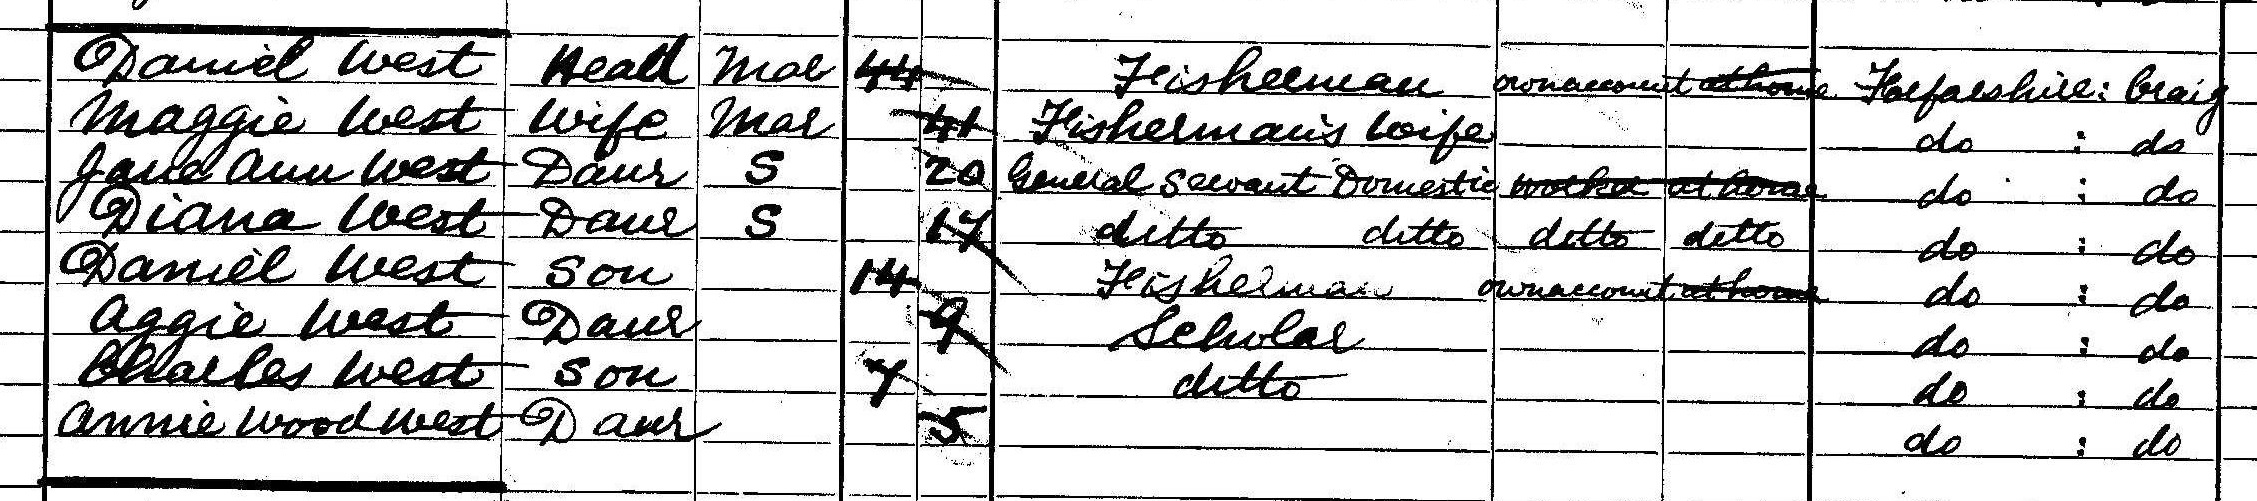 Daniel West Head Mar 44 Fisherman own account at home Forfarshire: Craig
Maggie West Wife Mar 41 Fisherman's Wife do : do
Jane Ann West Daur S 20 General Servant Domestic worker at home do : do
Diana West Daur S 17 ditto ditto ditto ditto do : do
Daniel West Son 14 Fisherman own account at home do : do
Aggie West Daur 9 Scholar do : do
Charles West Son 7 ditto do : do
Annie Wood West Daur 5 do : do